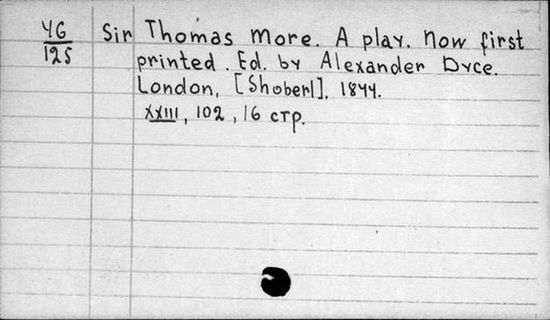 46
125
Sir Thomas More. A play. Now first
printed. Ed. by Alexander Dyce.
London, [Shoberl], 1844.
XXIII, 102, 16 стр.